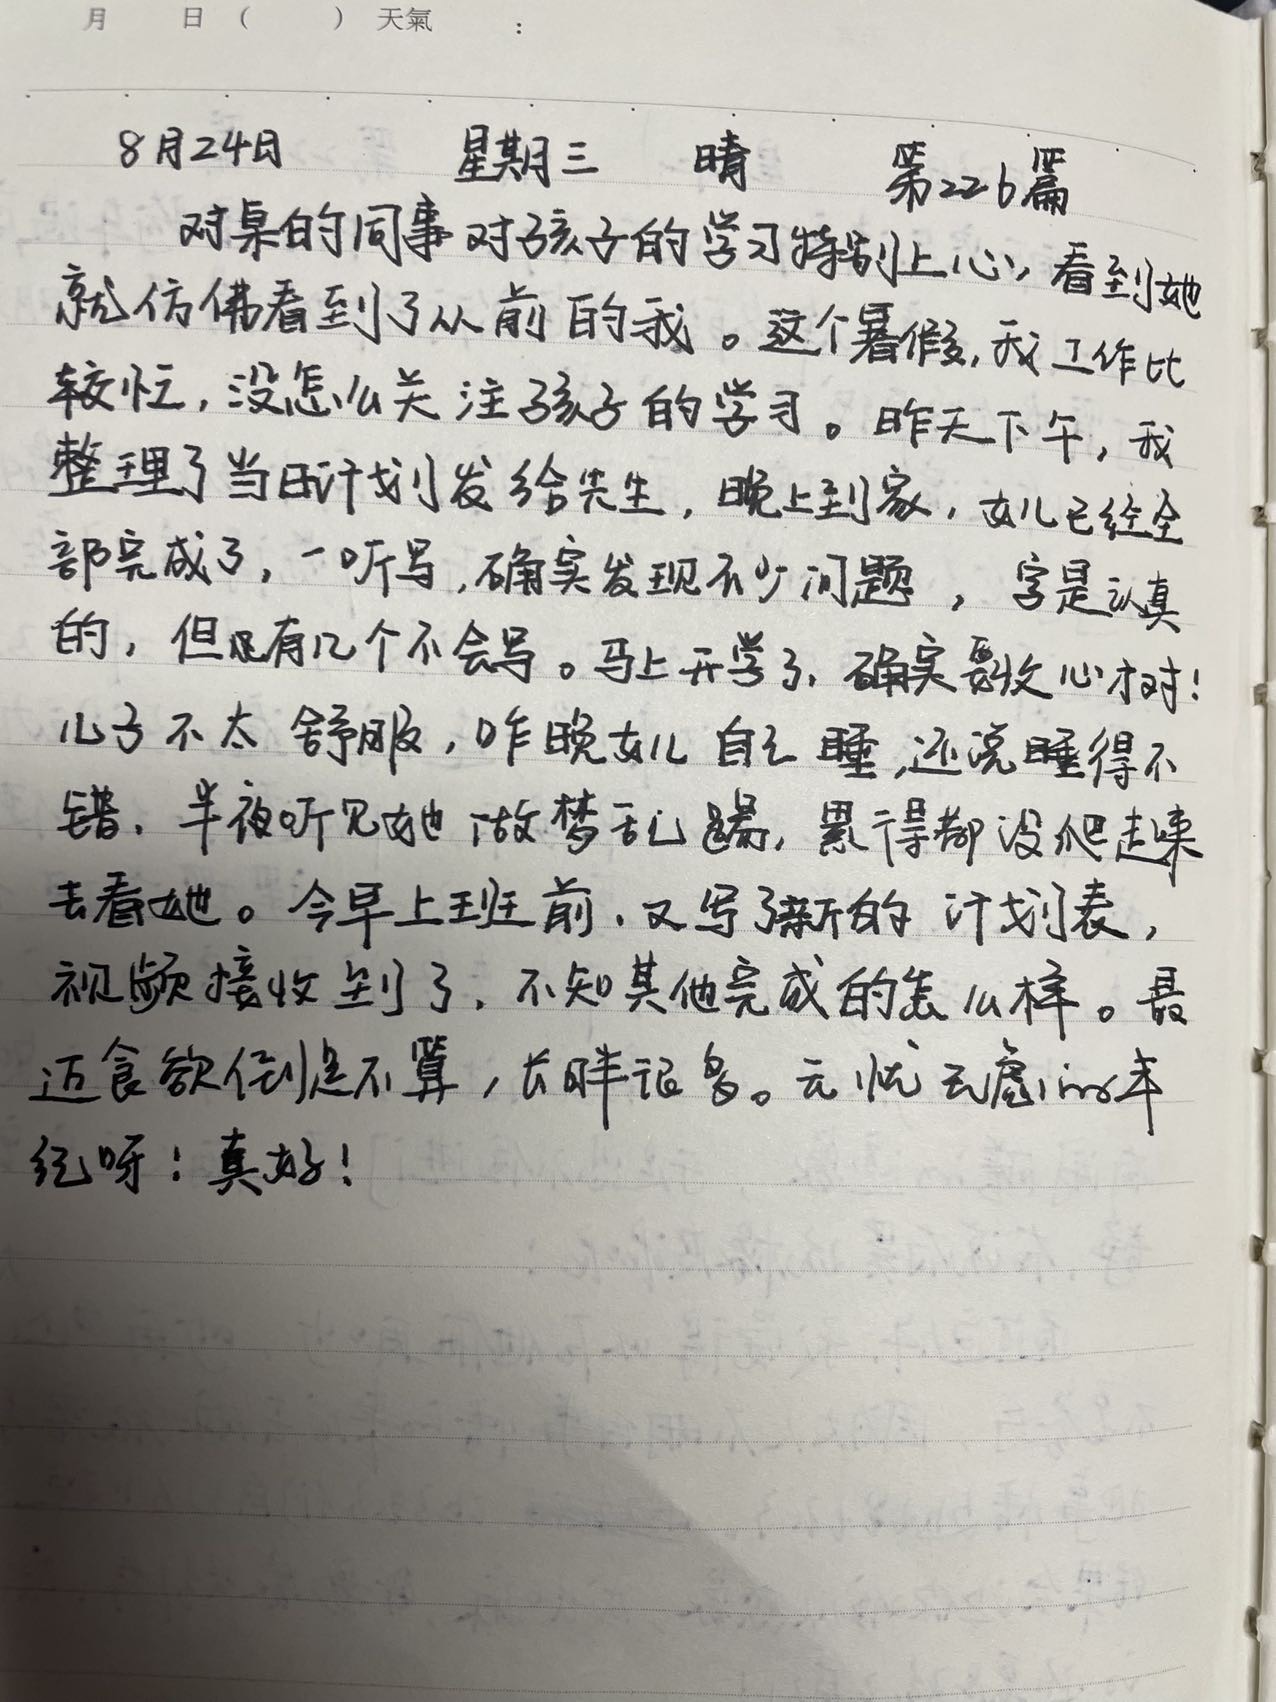 月 日( ) 天氣 :
8月24日 星期三 晴 第226篇
对桌的同事对孩子的学习特别上心，看到她
就仿佛看到了从前的我。这个暑假，我工作比
较忙，没怎么关注孩子的学习。昨天下午，我
整理了当日计划发给先生，晚上到家，女儿已经全
部完成了，一听写，确实发现不少问题，字是认真
的，但是有几个不会写。马上开学了，确实要收心对！
儿子不太舒服，昨晚女儿自己睡，还说睡得不
错，半夜听见她做梦乱踢，累得都没爬起来
去看她。今早上班前，又写了新的计划表，
视频接收到了，不知其他完成的怎么样。最
近食欲倒是不算，长胖很多。无忧无虑的年
纪呀！真好！